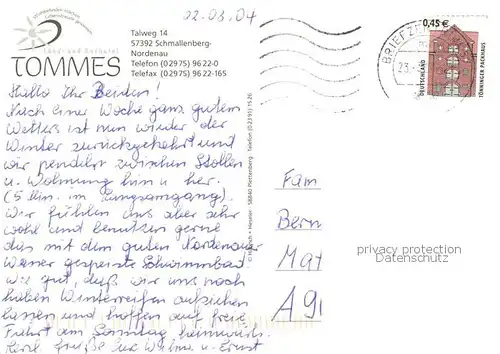 02.03.04
TOMMES
Talweg 14
57392 Schmallenberg-
Nordenau
Telefon (02975) 96 22-0
Telefax (02975) 96 22-165
Hallo Ihr Beiden!
Nach einer Woche ganz gutem
Wetters ist nun wieder der
Winter zurückgekehrt und
wir pendeln zwischen Stollen
u. Wohnung hin u. her.
(5 Min. im
Wir fühlen uns aber sehr
wohl und benutzen gerne
dies mit dem guten Nordenauer
Wasser gespeiste Schwimmbad
wie gut, daß wir uns noch
haben Winterreifen aufziehen
lassen und hoffen auf freie
Fahrt am Samstag heimwärts.
Herzl. Grüße Eure Wilma u. Ernst
Telefon (0 23 91) 15 26
58840 Plettenberg
BRIEFZE
0,45 €
DEUTSCHLAND
TÖNNINGER PACKHAUS
Fam
Bern
Mat
A91
privacy protection
Datenschutz